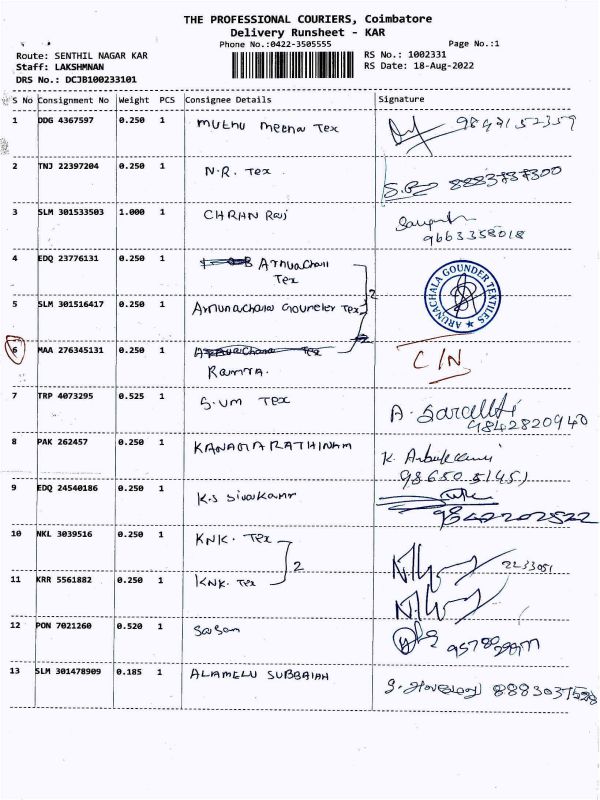 THE PROFESSIONAL COURIERS, Coimbatore
Delivery Runsheet - KAR
Phone No.:0422-3505555
Page No.:1
Route: SENTHIL NAGAR KAR
RS No.: 1002331
Staff: LAKSHMNAN
RS Date: 18-Aug-2022
DRS No.: DCJB100233101
S No Consignment No Weight PCS Consignee Details Signature
1 DDG 4367597 0.250 1 Muthu Meena Tex
2 TNJ 22397204 0.250 1 N.R. Tex 8883787300
3 SLM 301533503 1.000 1 CHRAN Raj
9663358018
4 EDQ 23776131 0.250 1 Arunachala
Tex
5 SLM 301516417 0.250 1 Arunachala Gounder Tex 2
ARUNACHALA GOUNDER TEXTILES
6 MAA 276345131 0.250 1 C/N
Ramya.
7 TRP 4073295 0.525 1 S.UM TEX
9842820940
8 PAK 262457 0.250 1 KANAGARATHINAM
9865051451
9 EDQ 24540186 0.250 1 K.S Sivakumar
10 NKL 3039516 0.250 1 KNK. Tex 2233051
2
11 KRR 5561882 0.250 1 KNK. Tex
12 PON 7021260 0.520 1 Sasam
13 SLM 301478909 0.185 1 ALAMELU SUBBAIAH